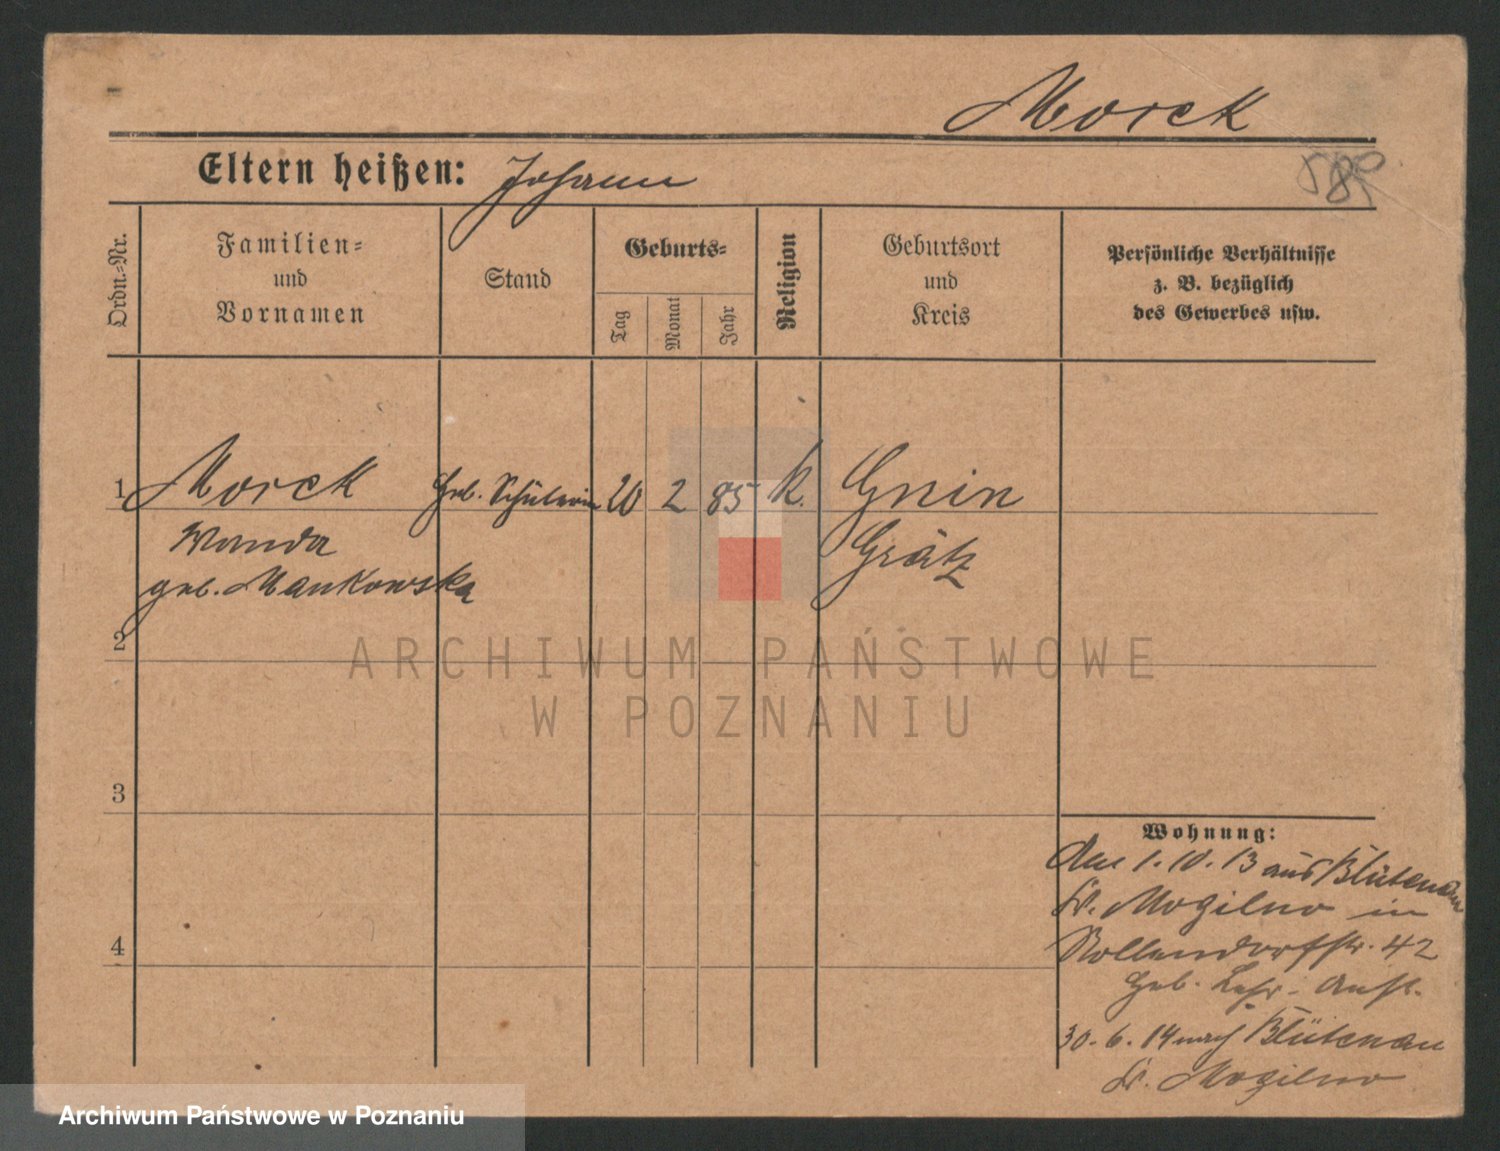 Morck
Eltern heißen: Johann
Ordn.=Nr.
Familien=
und
Vornamen
Stand
Geburts=
Tag
Monat
Jahr
Religion
Geburtsort
und
Kreis
Persönliche Verhältnisse
z. B. bezüglich
des Gewerbes usw.
1 Morck Heb. Schülerin 20 2 85 k. Gnin
Wanda Grätz
geb. Mankowska
2
ARCHIWUM PAŃSTWOWE
W POZNANIU
3
Wohnung:
Am 1.10.13 aus Blütenau
Kr. Mogilno in
Nollendorfstr. 42
4
Heb. Lehr-Anst.
30.6.14 nach Blütenau
Kr. Mogilno
Archiwum Państwowe w Poznaniu